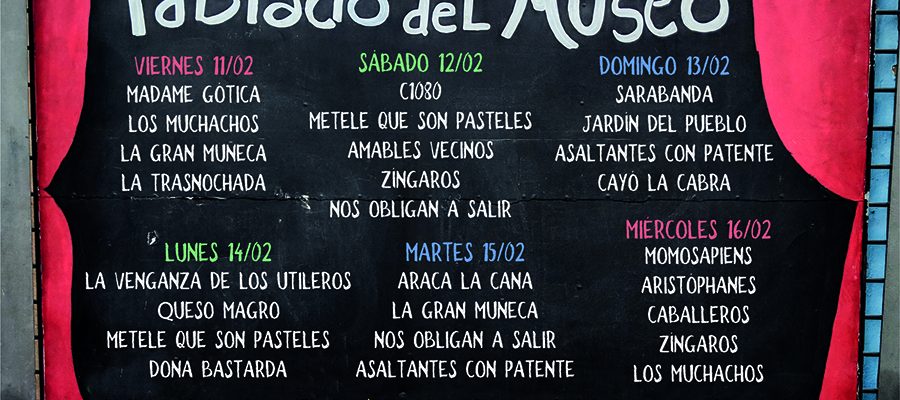 Tablado del Museo
VIERNES 11/02
MADAME GÓTICA
LOS MUCHACHOS
LA GRAN MUÑECA
LA TRASNOCHADA
SÁBADO 12/02
C1080
METELE QUE SON PASTELES
AMABLES VECINOS
ZÍNGAROS
NOS OBLIGAN A SALIR
DOMINGO 13/02
SARABANDA
JARDÍN DEL PUEBLO
ASALTANTES CON PATENTE
CAYÓ LA CABRA
LUNES 14/02
LA VENGANZA DE LOS UTILEROS
QUESO MAGRO
METELE QUE SON PASTELES
DOÑA BASTARDA
MARTES 15/02
ARACA LA CANA
LA GRAN MUÑECA
NOS OBLIGAN A SALIR
ASALTANTES CON PATENTE
MIÉRCOLES 16/02
MOMOSAPIENS
ARISTÓPHANES
CABALLEROS
ZÍNGAROS
LOS MUCHACHOS